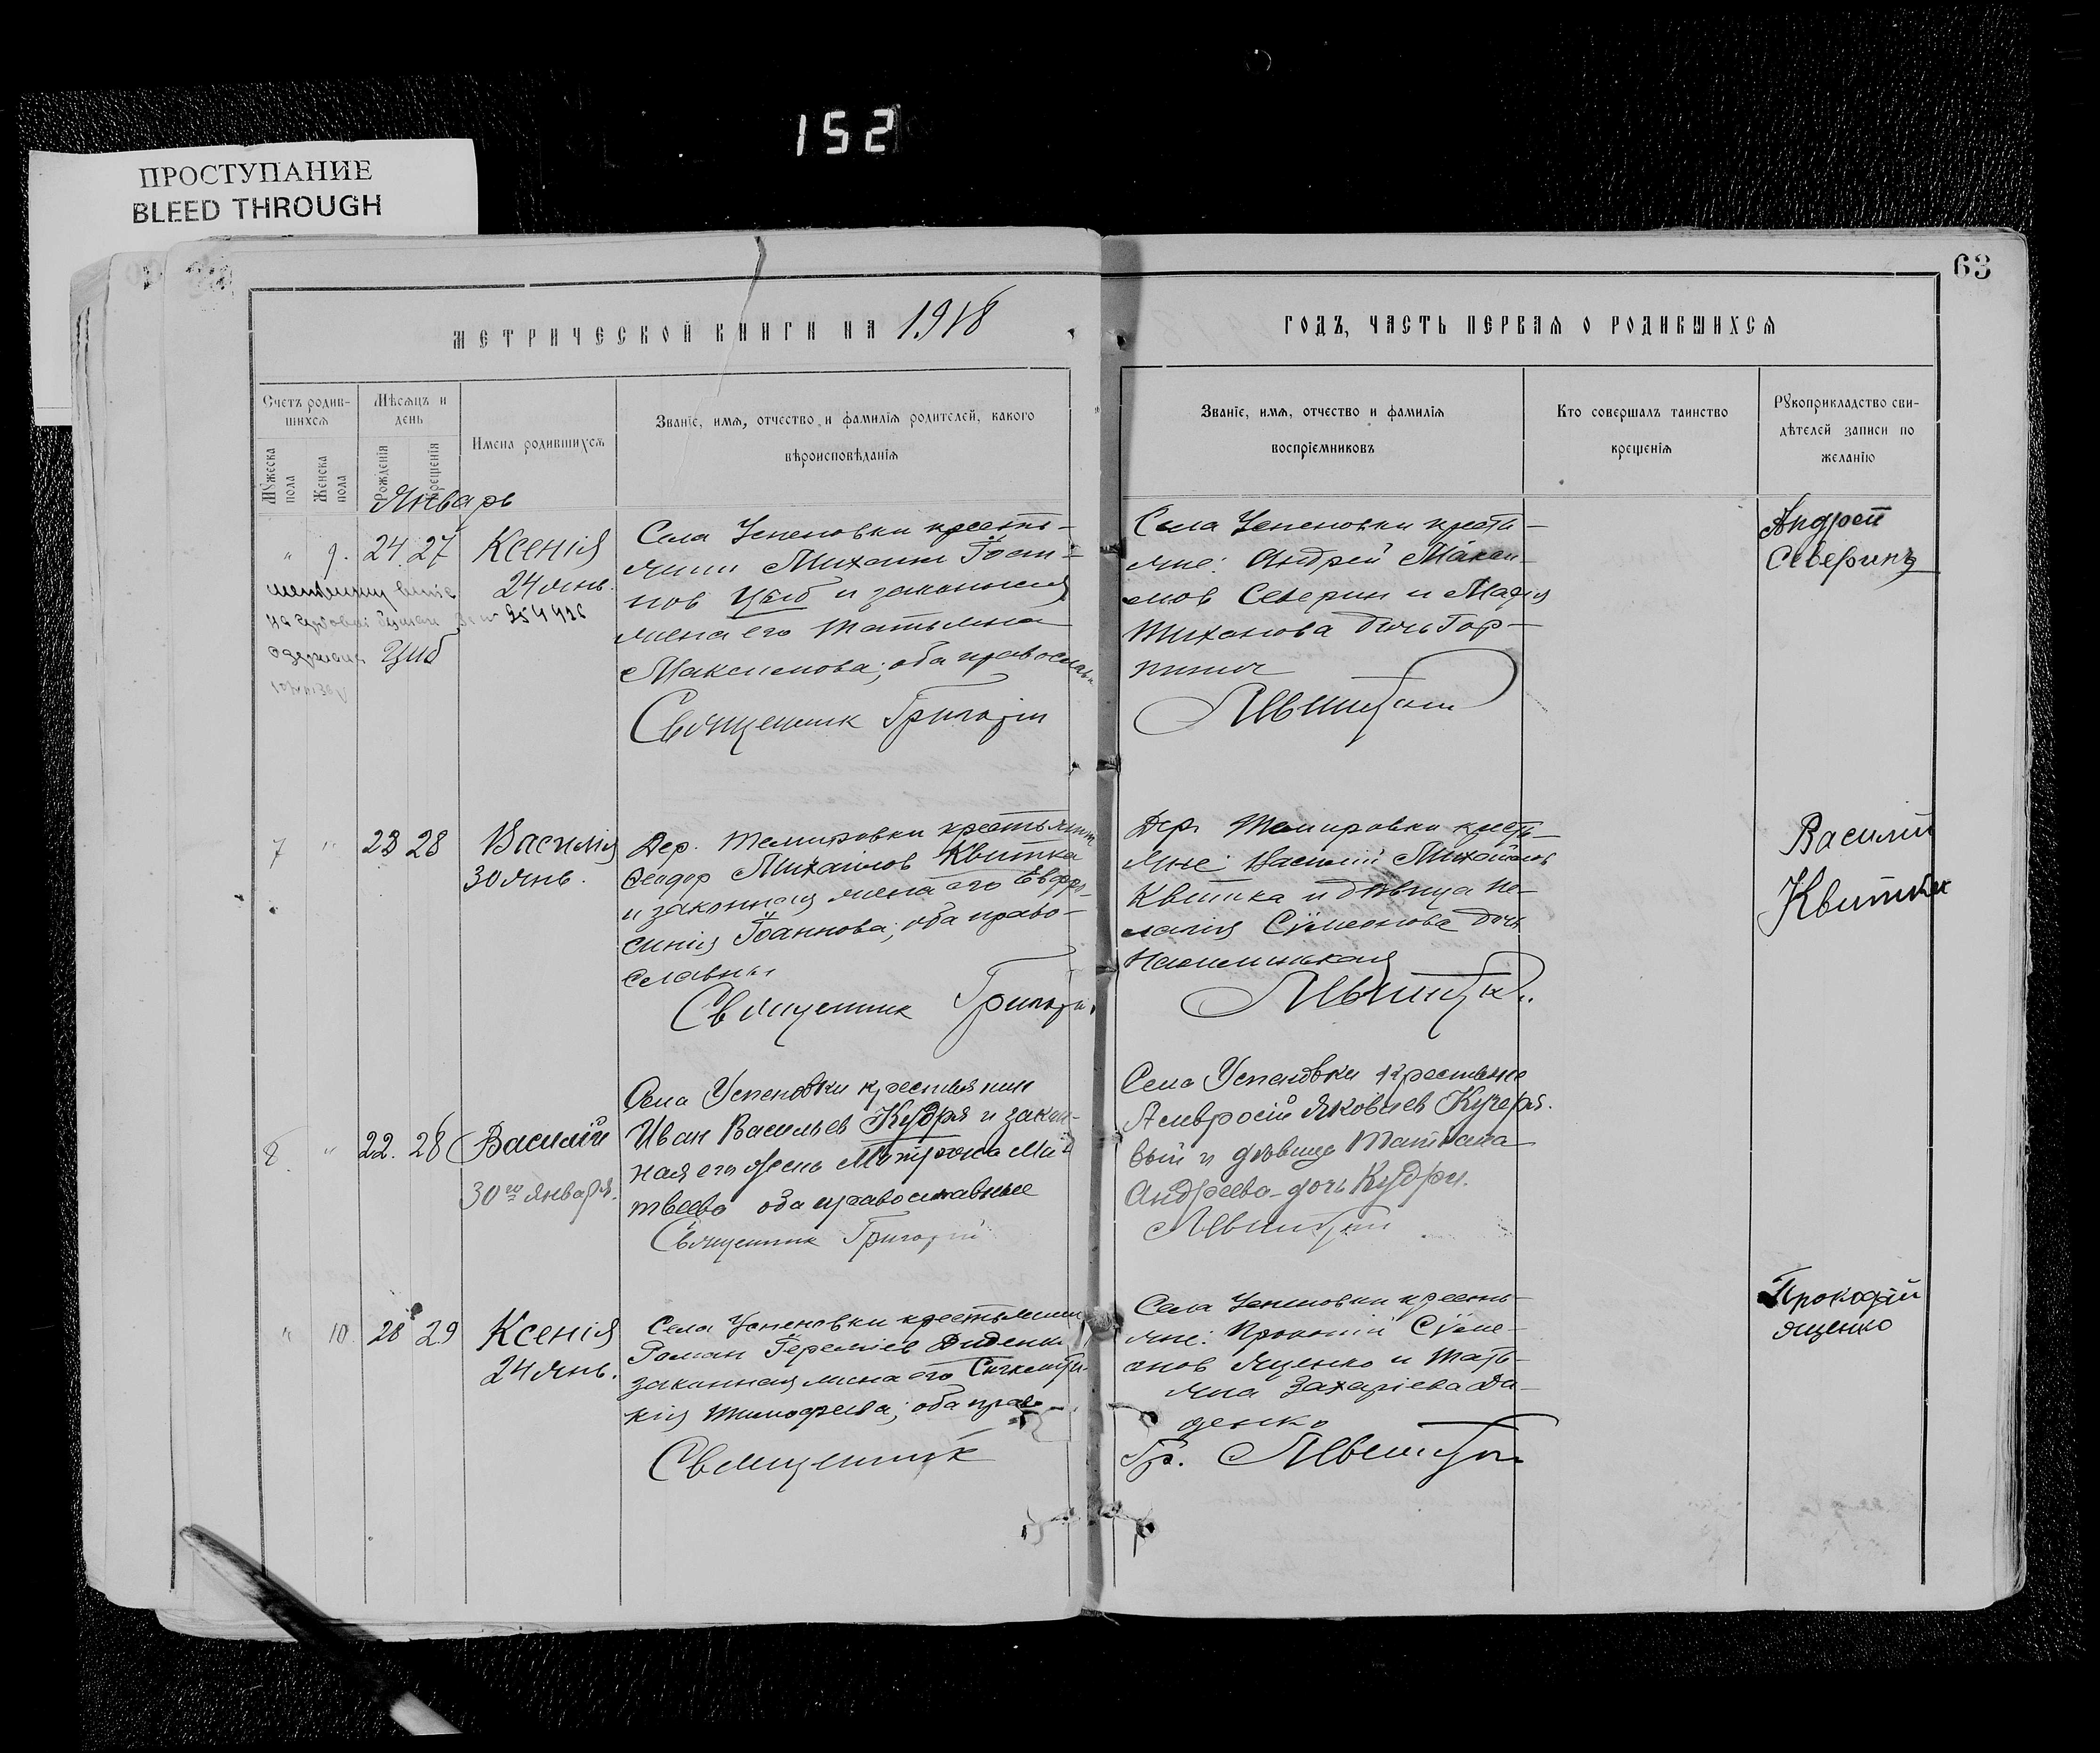 152
ПРОСТУПАНИЕ
BLEED THROUGH
63
МЕТРИЧЕСКОЙ КНИГИ НА 1918
ГОДЪ, ЧАСТЬ ПЕРВАЯ О РОДИВШИХСЯ
Счетъ родив-
шихся
Мужеска
пола
Женска
пола
Мѣсяцъ и
день
Рожденія
Крещенія
Имена родившихся
Званіе, имя, отчество и фамилія родителей, какого
вѣроисповѣданія
Званіе, имя, отчество и фамилія
воспріемниковъ
Кто совершалъ таинство
крещенія
Рукоприкладство сви-
дѣтелей записи по
желанію
Январь
" 9. 24. 27 Ксенія
24 янв.
254426
Циб
Села Успеновки кресть-
янин Михаил Іоан-
нов Циб и законная
жена его Татьяна
Максимова; оба православн
Священник Григорій
Села Успеновки кресть-
яне: Андрей Макси-
мов Северин и
Тихонова дочь Гор-
Андрей
Северинъ
7 " 23 28 Василій
30 янв.
Дер. Темировки крестьянин
Ѳеодор Михаилов Квитка
и законная жена его Евфро-
синія Іоаннова; оба право-
славны
Священник Григорій
Дер. Темировки кресть-
яне: Василій Михайлов
Квитка и дѣвица Пе-
лагия Сѵмеонова дочь
Василий
Квитка
8. " 22. 28 Василій
30го Января.
Села Успеновки крестьянин
Иван Васильев Кудря и закон-
ная его жена Матрона Ма-
твеева оба православные
Священник Григорій
Села Успеновки крестьяне
Амвросій Яковлев Кучеря-
вый и дѣвица Татіана
Андреева дочь Кудри.
" 10. 28 29 Ксенія
24 янв.
Села Успеновки крестьянин
Роман Іереміев Диденко
законная жена его
кія Тимофеева; оба прав
Священник
Села Успеновки кресть-
яне: Прокопій Сѵме-
онов Яценко и Тать-
яна Захаріева Ди-
денко
Гр.
Прокофий
Яценко